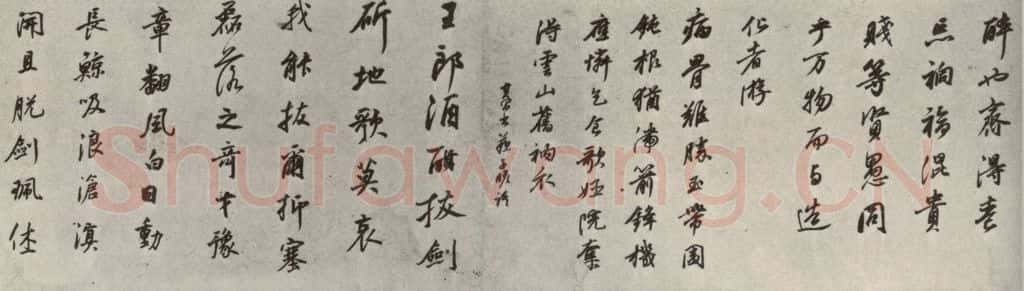 醉也齊得喪
忘禍福混貴
賤等賢愚同
乎万物而与造
化者游
病骨難勝玉帶圍
鈍根猶滯箭鋒機
應憐乞食歌姬院奪
得雲山舊衲衣
王郎酒酣拔劍
斫地歌莫哀
我能拔爾抑塞
磊落之奇才豫
章翻風白日動
長鯨吸浪滄溟
開且脫劍珮休
Shufawang.CN